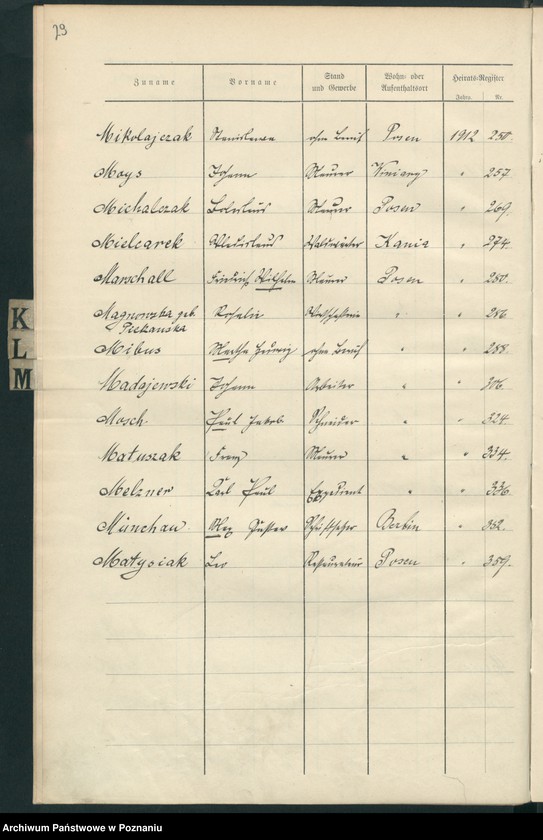 29
Zuname Vorname Stand und Gewerbe Wohn- oder Aufenthaltsort Heirats-Register
Jahr. Nr.
Mikolajczak Stanislawa ohne Beruf Posen 1912 250.
Moys Johann Maurer " 257.
Michalczak Boleslaus Maurer Posen " 269.
Mielcarek Wladislaus Kania " 274.
Marschall Friedrich Wilhelm Maurer Posen " 280.
Magnowska geb. Rosalie Wirtschafterin " " 286.
Piekarska
Mibus Martha Hedwig ohne Beruf " " 288.
Madajewski Johann Arbeiter " " 306.
Mosch Paul Jakob Schneider " " 324.
Matuszak Franz Maurer " " 334.
Melzner Carl Paul Expedient " " 336.
Münchau Max Gustav Schriftsetzer Berlin " 352.
Matysiak Leo Restaurateur Posen " 359.
K
L
M
Archiwum Państwowe w Poznaniu